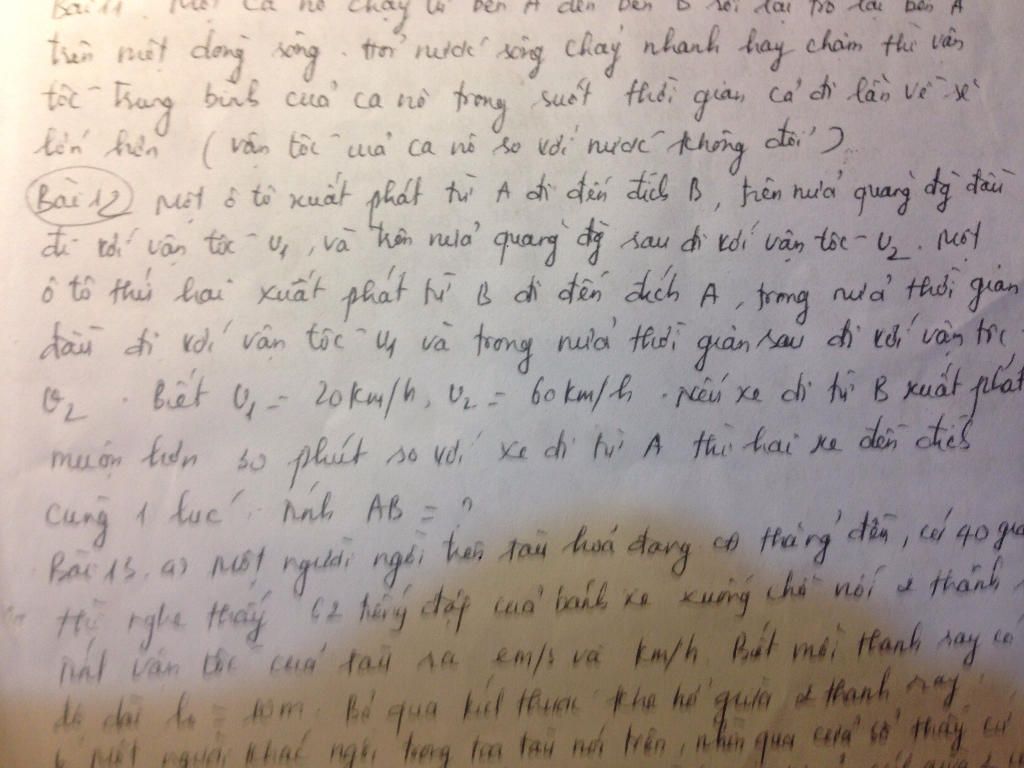 Bài 11. Một ca nô chạy từ bến A đến bến B rồi lại trở lại bến A
trên một dòng sông. Hỏi nước sông chảy nhanh hay chậm thì vận
tốc trung bình của ca nô trong suốt thời gian cả đi lẫn về sẽ
lớn hơn (vận tốc của ca nô so với nước không đổi)
Bài 12 Một ô tô xuất phát từ A đi đến đích B, trên nửa quãng đg đầu
đi với vận tốc v1, và trên nửa quãng đg sau đi với vận tốc v2. Một
ô tô thứ hai xuất phát từ B đi đến đích A, trong nửa thời gian
đầu đi với vận tốc v1 và trong nửa thời gian sau đi với vận tốc
v2. Biết v1 = 20km/h, v2 = 60km/h. Nếu xe đi từ B xuất phát
muộn hơn 30 phút so với xe đi từ A thì hai xe đến đích
cùng 1 lúc. Tính AB = ?
Bài 13. a) Một người ngồi trên tàu hoả đang cđ thẳng đều, cứ 40 giâ
thì nghe thấy 62 tiếng đập của bánh xe xuống chỗ nối 2 thanh
tính vận tốc của tàu ra cm/s và km/h. Biết mỗi thanh ray có
độ dài lo = 10m. Bỏ qua kích thước khe hở giữa 2 thanh ray.
Một người khác ngồi trong toa tàu nói trên, nhìn qua cửa sổ thấy cứ